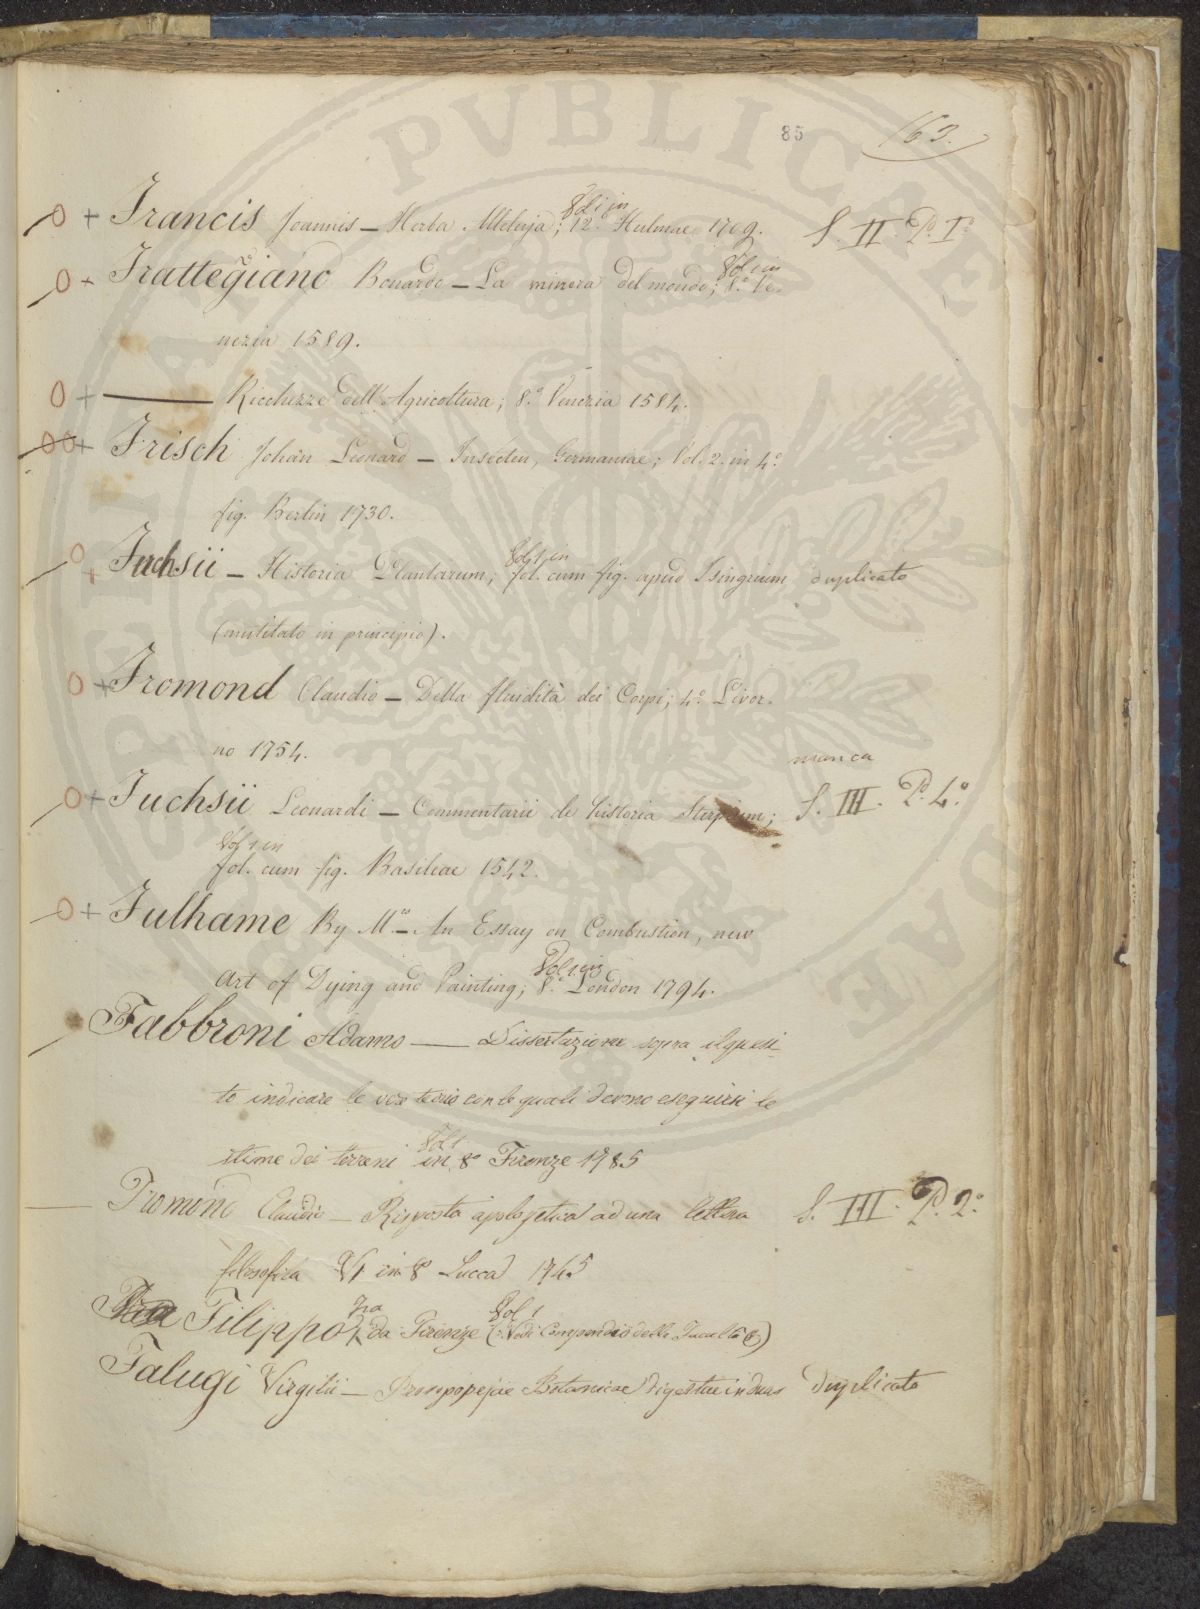 85 163.
Francis Joannis – Herba Alleluja; Vol. 1 in 12.° Hulmae 1709. S. II. P. I.°
Frattegiano Bonardo – La minera del mondo; Vol 1 in 8.° Ve-
nezia 1589.
Ricchezze dell'Agricoltura; 8.° Venezia 1584.
Frisch Johan Leonard – Insecten, Germaniae; Vol. 2. in 4.°
fig. Berlin 1730.
Fuchsii – Historia Plantarum; Vol 1 in fol. cum fig. apud Isingrium duplicato
(mutilato in principio).
Fromond Claudio – Della fluidità dei Corpi; 4.° Livor-
no 1754.
manca
Fuchsii Leonardi – Commentarii de historia Stirpium; S. III. P. 4.°
Vol 1 in
fol. cum fig. Basileae 1542.
Fulhame By M.rs – An Essay on Combustion, new
Art of Dying and Painting; Vol 1 in 8.° London 1794.
Fabbroni Adamo — Dissertazione sopra il quesi-
to indicare le vere teorie con le quali devono eseguirsi le
stime dei terreni Vol 1 in 8° Firenze 1785
Fromond Claudio – Risposta apologetica ad una lettera S. III. P. 2.°
filosofica V 1 in 8° Lucca 1765
Filippo Fra da Firenze Vol 1 (Vedi Compendio delle Facoltà &)
Falugi Virgilii – Prosopopejae Botanicae digestae in duas Duplicato